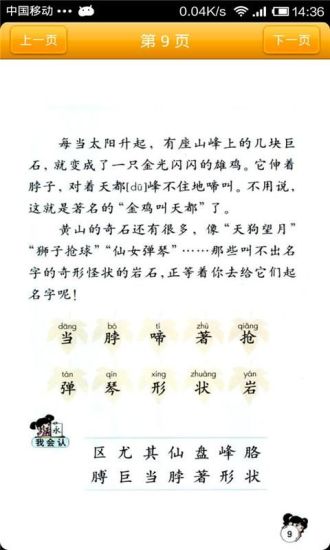 中国移动 ••• 0.04K/s 14:36
上一页 第 9 页 下一页
每当太阳升起，有座山峰上的几块巨
石，就变成了一只金光闪闪的雄鸡。它伸着
脖子，对着天都[dū]峰不住地啼叫。不用说，
这就是著名的“金鸡叫天都”了。
黄山的奇石还有很多，像“天狗望月”
“狮子抢球”“仙女弹琴”……那些叫不出名
字的奇形怪状的岩石，正等着你去给它们起
名字呢！
dāng bó tí zhù qiǎng
当 脖 啼 著 抢
tán qín xíng zhuàng yán
弹 琴 形 状 岩
我会认
区 尤 其 仙 盘 峰 胳
膊 巨 当 脖 著 形 状
9